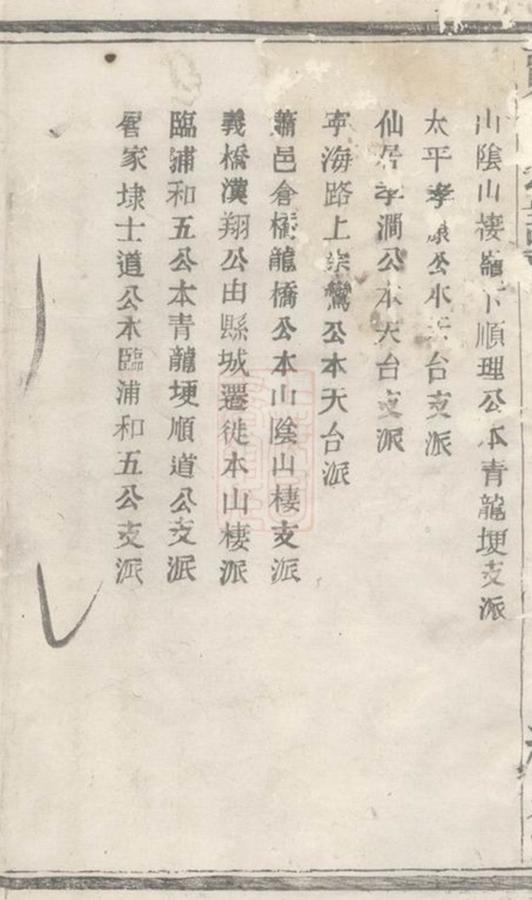 山陰山棲巃下順理公本青龍埂支派
太平孝康公本天台支派
仙居孝澗公本天台支派
寧海路上崇鸞公本天台派
蕭邑倉橋龍橋公本山陰山棲支派
義橋漢翔公由縣城遷徙本山棲派
臨浦和五公本青龍埂順道公支派
屠家埭士道公本臨浦和五公支派